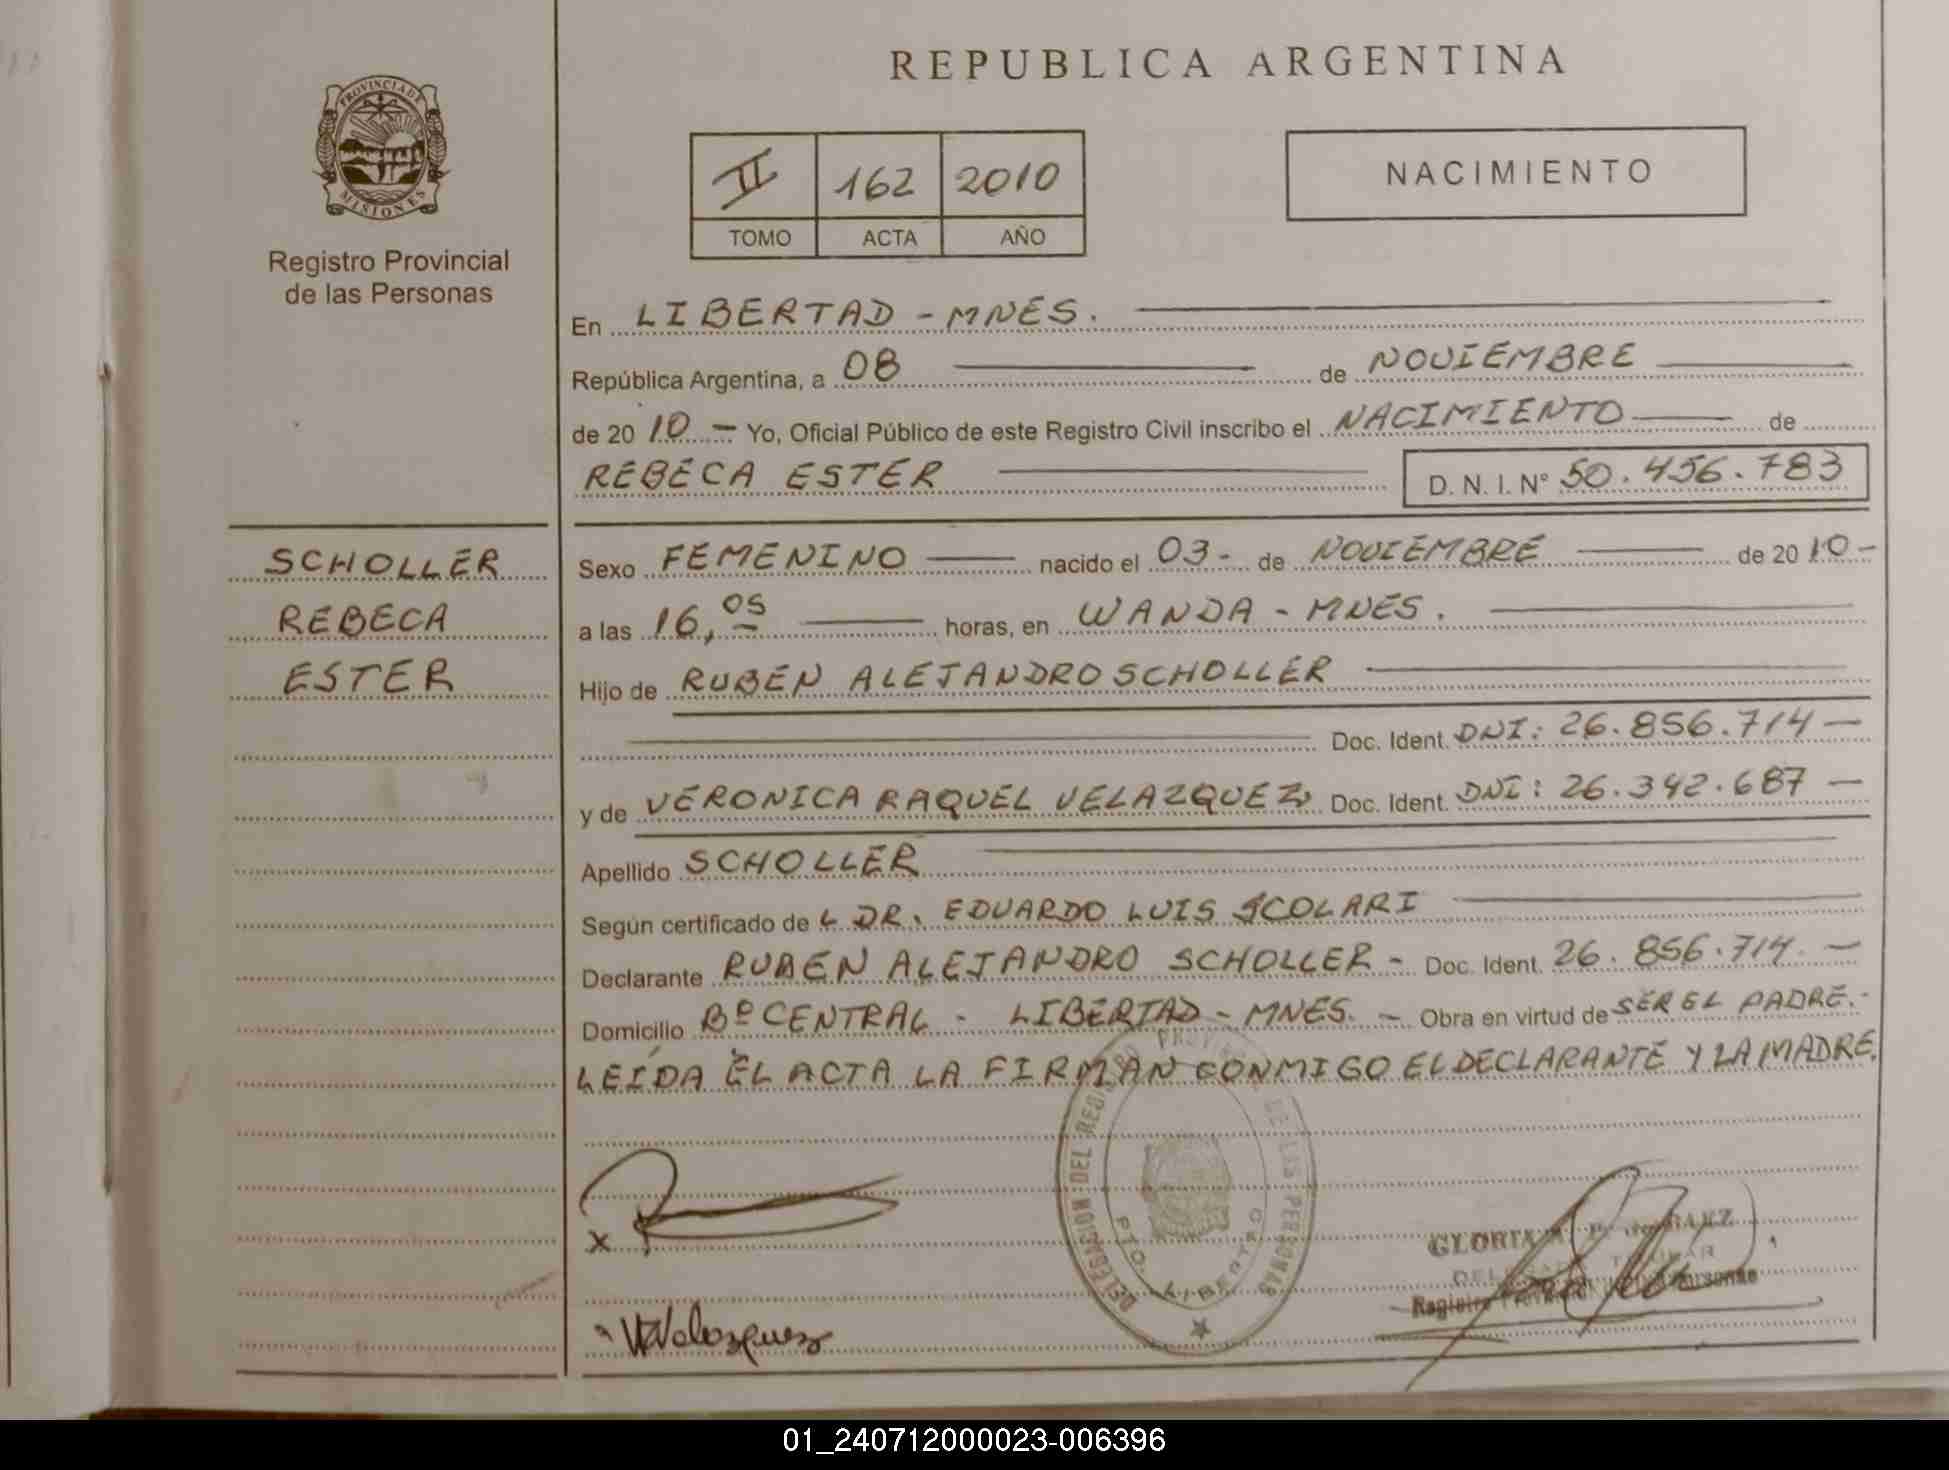 REPUBLICA ARGENTINA
PROVINCIA DE
MISIONES
Registro Provincial
de las Personas
II 162 2010
TOMO ACTA AÑO
NACIMIENTO
En LIBERTAD - MNES.
República Argentina, a 08 de NOVIEMBRE
de 20 10 - Yo, Oficial Público de este Registro Civil inscribo el NACIMIENTO de
REBECA ESTER D. N. I. Nº 50.456.783
SCHOLLER
REBECA
ESTER
Sexo FEMENINO nacido el 03 - de NOVIEMBRE de 20 10 -
a las 16,05 horas, en WANDA - MNES.
Hijo de RUBEN ALEJANDRO SCHOLLER
Doc. Ident. DNI: 26.856.714 -
y de VERONICA RAQUEL VELAZQUEZ Doc. Ident. DNI: 26.342.687 -
Apellido SCHOLLER
Según certificado de DR. EDUARDO LUIS SCOLARI
Declarante RUBEN ALEJANDRO SCHOLLER - Doc. Ident. 26.856.714. -
Domicilio Bº CENTRAL - LIBERTAD - MNES. - Obra en virtud de SER EL PADRE.-
LEÍDA EL ACTA LA FIRMAN CONMIGO EL DECLARANTE Y LA MADRE.
DELEGACION DEL REGISTRO PROVINCIAL DE LAS PERSONAS
PTO. LIBERTAD
x
Velazquez
GLORIA
Registro
01_240712000023-006396